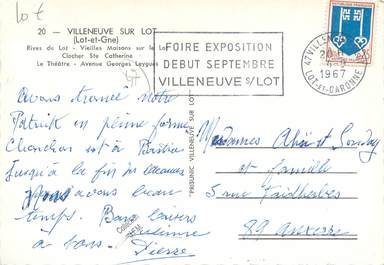 lot
20 — VILLENEUVE SUR LOT
(Lot-et-Gne)
Rives du Lot - Vieilles Maisons sur le Lot
Clocher Ste Catherine
Le Théâtre - Avenue Georges Leygues
FOIRE EXPOSITION
DEBUT SEPTEMBRE
VILLENEUVE S/LOT
47 VILLENEUVE
1967
LOT-ET-GARONNE
"PRISUNIC VILLENEUVE SUR LOT"
Avons trouvé notre
Patrick en pleine forme
est à
Jusqu'à la fin des vacances
Nous avons beau
temps. Bons baisers
à tous.
Pierre
Mesdames et
et famille
5 rue Faidherbes
89 Auxerre